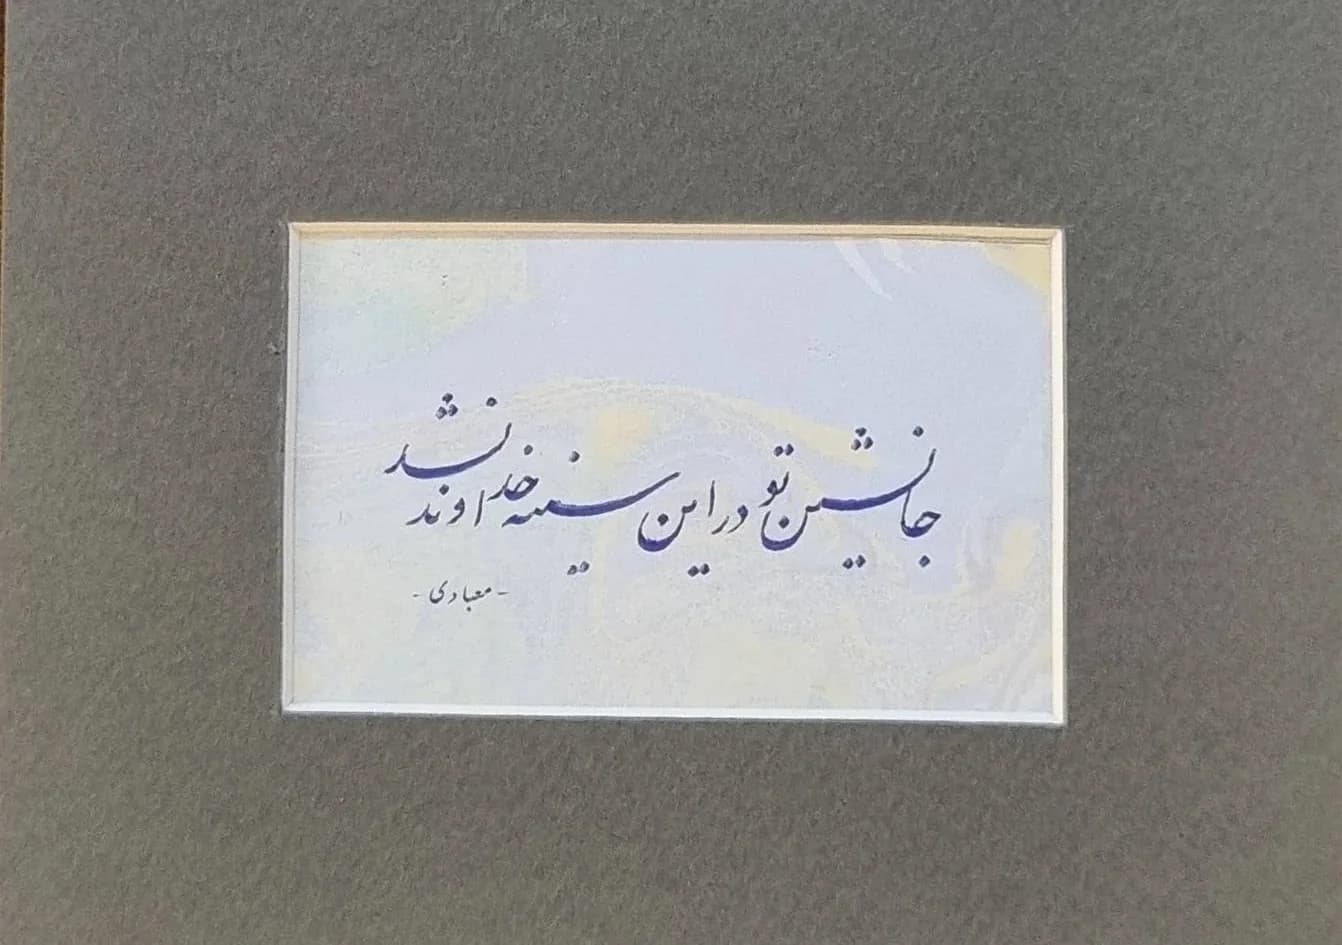 جانشین تو در این سینه خداوند نشد
- معبادی -